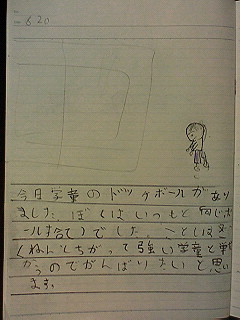 6 20
今日学童のドッヂボールがあり
ました。ぼくはいつもと同じボ
ール拾いでした。ことしは
くねんとちがって強い学童と
かうのでがんばりたいと思い
ます。